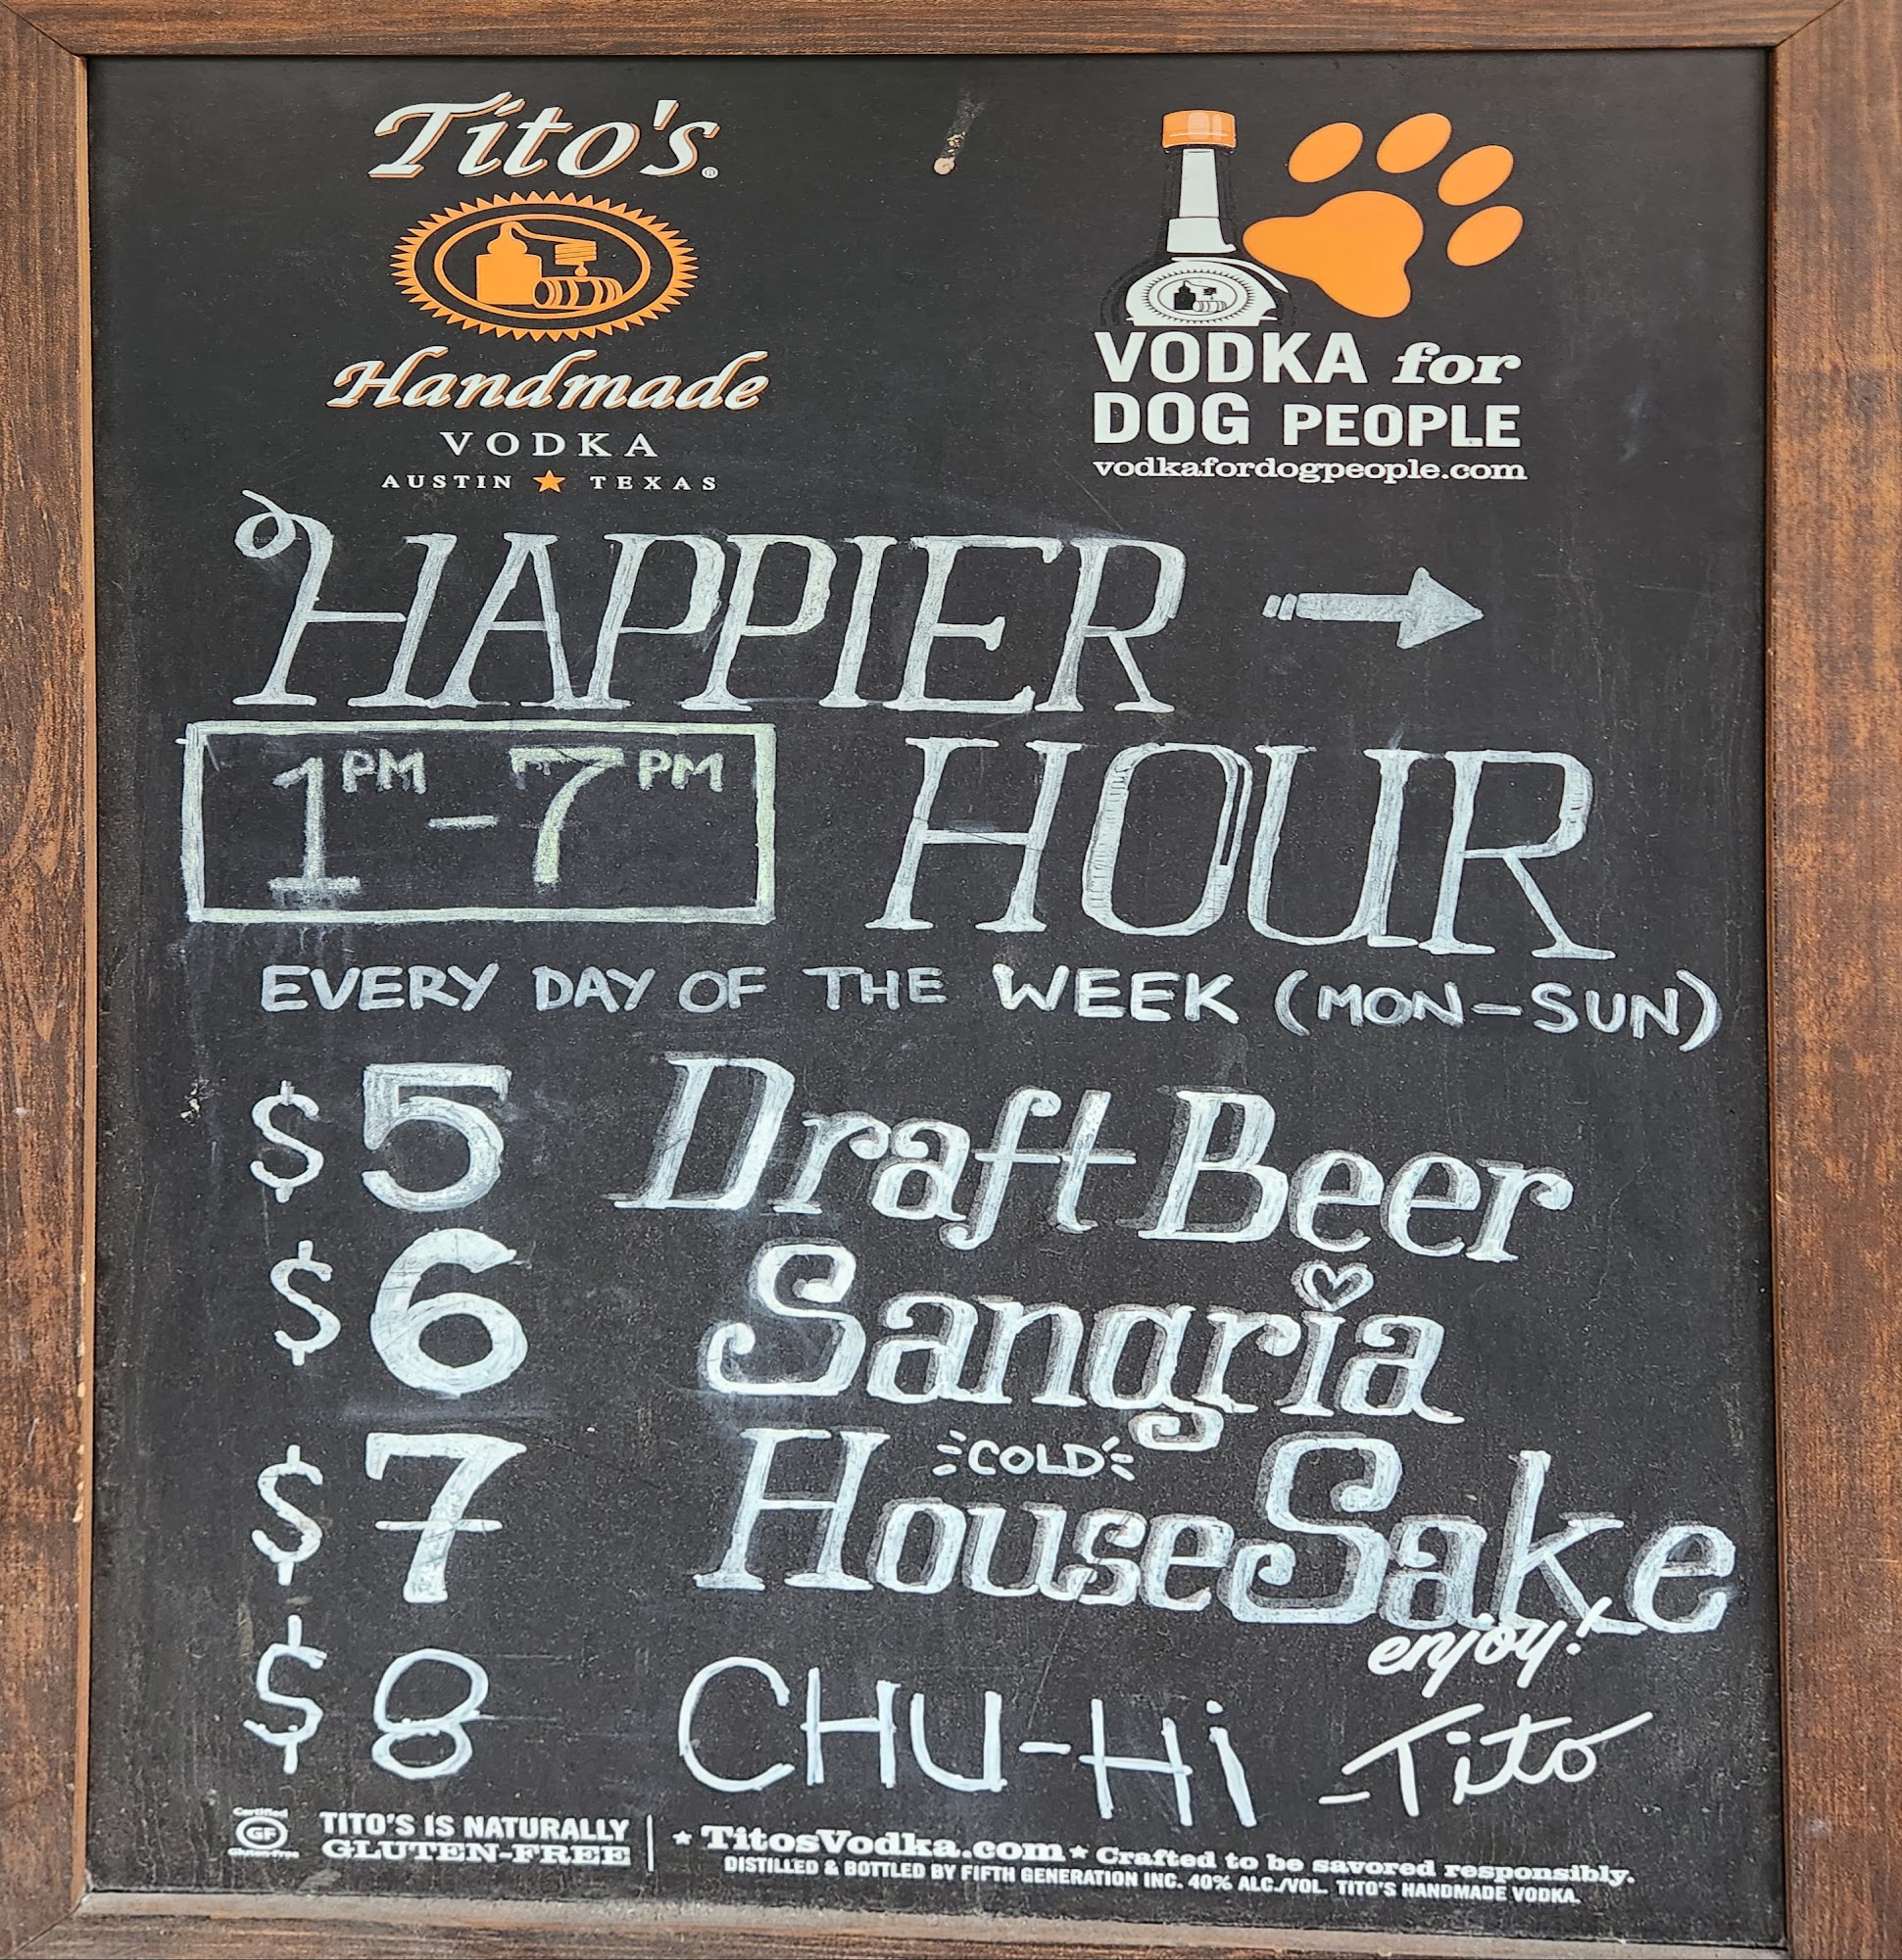 Tito's®
Handmade
VODKA
AUSTIN ★ TEXAS
VODKA for
DOG PEOPLE
vodkafordogpeople.com
HAPPIER →
1PM - 7PM HOUR
EVERY DAY OF THE WEEK (MON-SUN)
$5 Draft Beer
$6 Sangria
COLD
$7 House Sake
$8 CHU-Hi
enjoy!
-Tito
Certified
GF
Gluten-Free
TITO'S IS NATURALLY
GLUTEN-FREE
★ TitosVodka.com ★ Crafted to be savored responsibly.
DISTILLED & BOTTLED BY FIFTH GENERATION INC. 40% ALC./VOL. TITO'S HANDMADE VODKA.